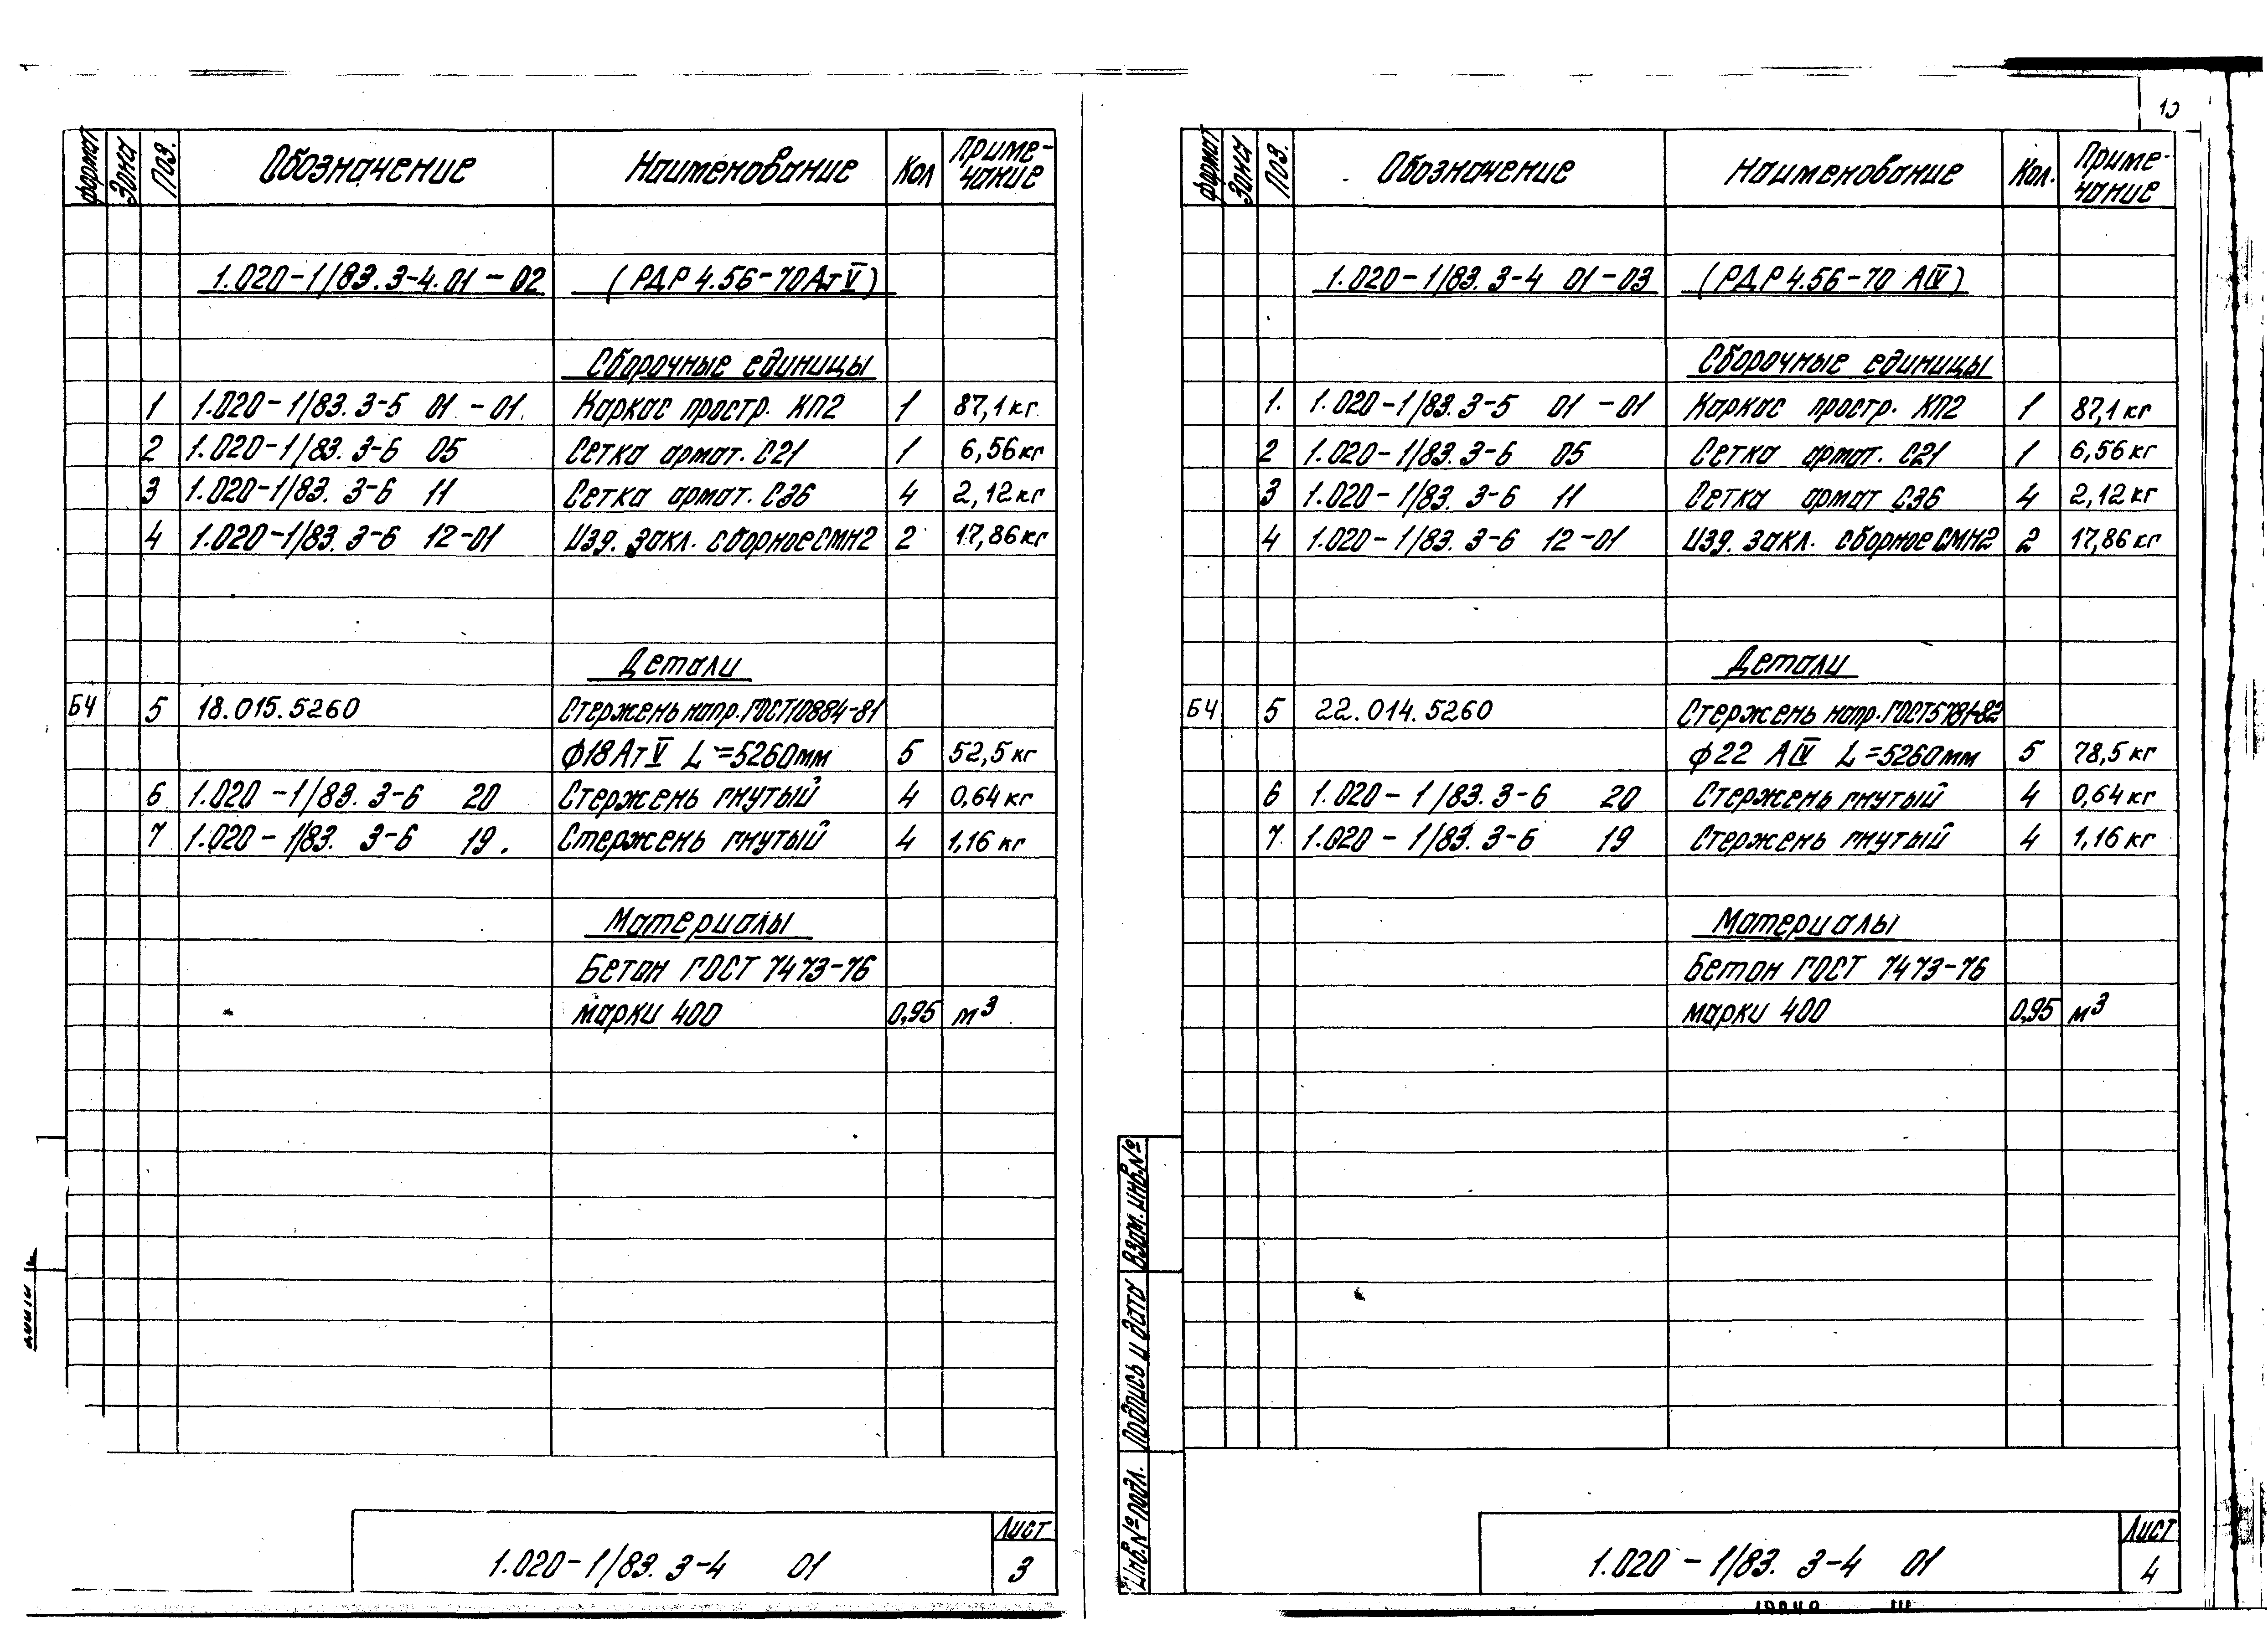 формат Зона Поз. Обозначение Наименование Кол Приме-чание
1.020-1/83.3-4.01-02 (РДР4.56-70АтV)
Сборочные единицы
1 1.020-1/83.3-5 01-01. Каркас простр. КП2 1 87,1кг.
2 1.020-1/83.3-6 05 Сетка армат. С21 1 6,56кг
3 1.020-1/83. 3-6 11 Сетка армат. С36 4 2,12кг
4 1.020-1/83.3-6 12-01 Изд. закл. сборное СМН2 2 17,86кг
Детали
БЧ 5 18.015.5260 Стержень напр. ГОСТ10884-81
ϕ18АтV L=5260мм 5 52,5кг
6 1.020-1/83.3-6 20 Стержень гнутый 4 0,64кг
7 1.020-1/83. 3-6 19. Стержень гнутый 4 1,16кг
Материалы
Бетон ГОСТ 7473-76
марки 400 0,95 м³
1.020-1/83. 3-4 01
Лист
3
13
формат Зона Поз. Обозначение Наименование Кол. Приме-чание
1.020-1/83. 3-4 01-03 (РДР4.56-70 АIV)
Сборочные единицы
1. 1.020-1/83.3-5 01-01 Каркас простр. КП2 1 87,1кг
2 1.020-1/83.3-6 05 Сетка армат. С21 1 6,56кг
3 1.020-1/83. 3-6 11 Сетка армат С36 4 2,12кг
4 1.020-1/83. 3-6 12-01 Изд. закл. сборное СМН2 2 17,86кг
Детали
БЧ 5 22.014.5260 Стержень напр. ГОСТ5781-82
ϕ22 АIV L=5260мм 5 78,5кг
6 1.020-1/83.3-6 20 Стержень гнутый 4 0,64кг
7. 1.020-1/83. 3-6 19 Стержень гнутый 4 1,16кг
Материалы
Бетон ГОСТ 7473-76
марки 400 0,95 м³
Взам. инв. №
Подпись и дата
Инв. № подл.
1.020-1/83. 3-4 01
Лист
4